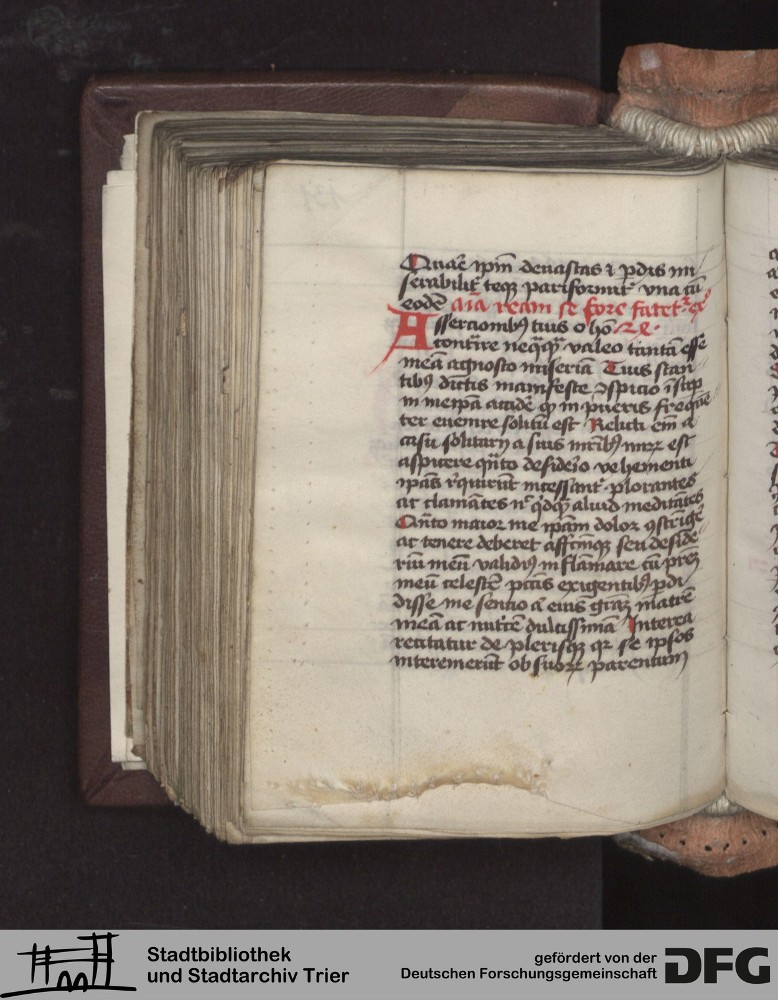 Quare ip̄m deuastas ⁊ ꝑdis mi
serabilit᷑ teqꝫ pariformit᷑ vna cū
eodē aīa ream se fore fatet᷑ ex
Assercionibꝰ tuis o hō
contraire neq̄qꝫ valeo tantā esse
meā agnosco miseriā Tuis etiam
tibꝰ dictis manifeste ꝯspicio
in meip̄a accidē qꝫ in pueris freq̄n
ter euenire solitū est Relicti em̄ a
casu solitarij a suis mr̄ibꝰ mox est
aspicere qn̄to desiderio vehementi
ip̄as req̇rūt incessant᷑ plorantes
ac clamātes nͨ q̇dqꝫ aliud meditātes
Qn̄to maior me ip̄am dolor ꝯstrīgē
ac tenere deberet affcūqꝫ seu deside
riū meū validiꝰ inflāmare cū prēꝫ
meū celestē pctīs exigentibꝰ ꝑdi
disse me sencio ac̄ eius grāꝫ matrē
meā ac nutricē dulcissimā Interea
recitatur de plerisqꝫ qꝫ se ipsos
interemerūt ob suorꝝ parentum
Stadtbibliothek
und Stadtarchiv Trier
gefördert von der
Deutschen Forschungsgemeinschaft
DFG